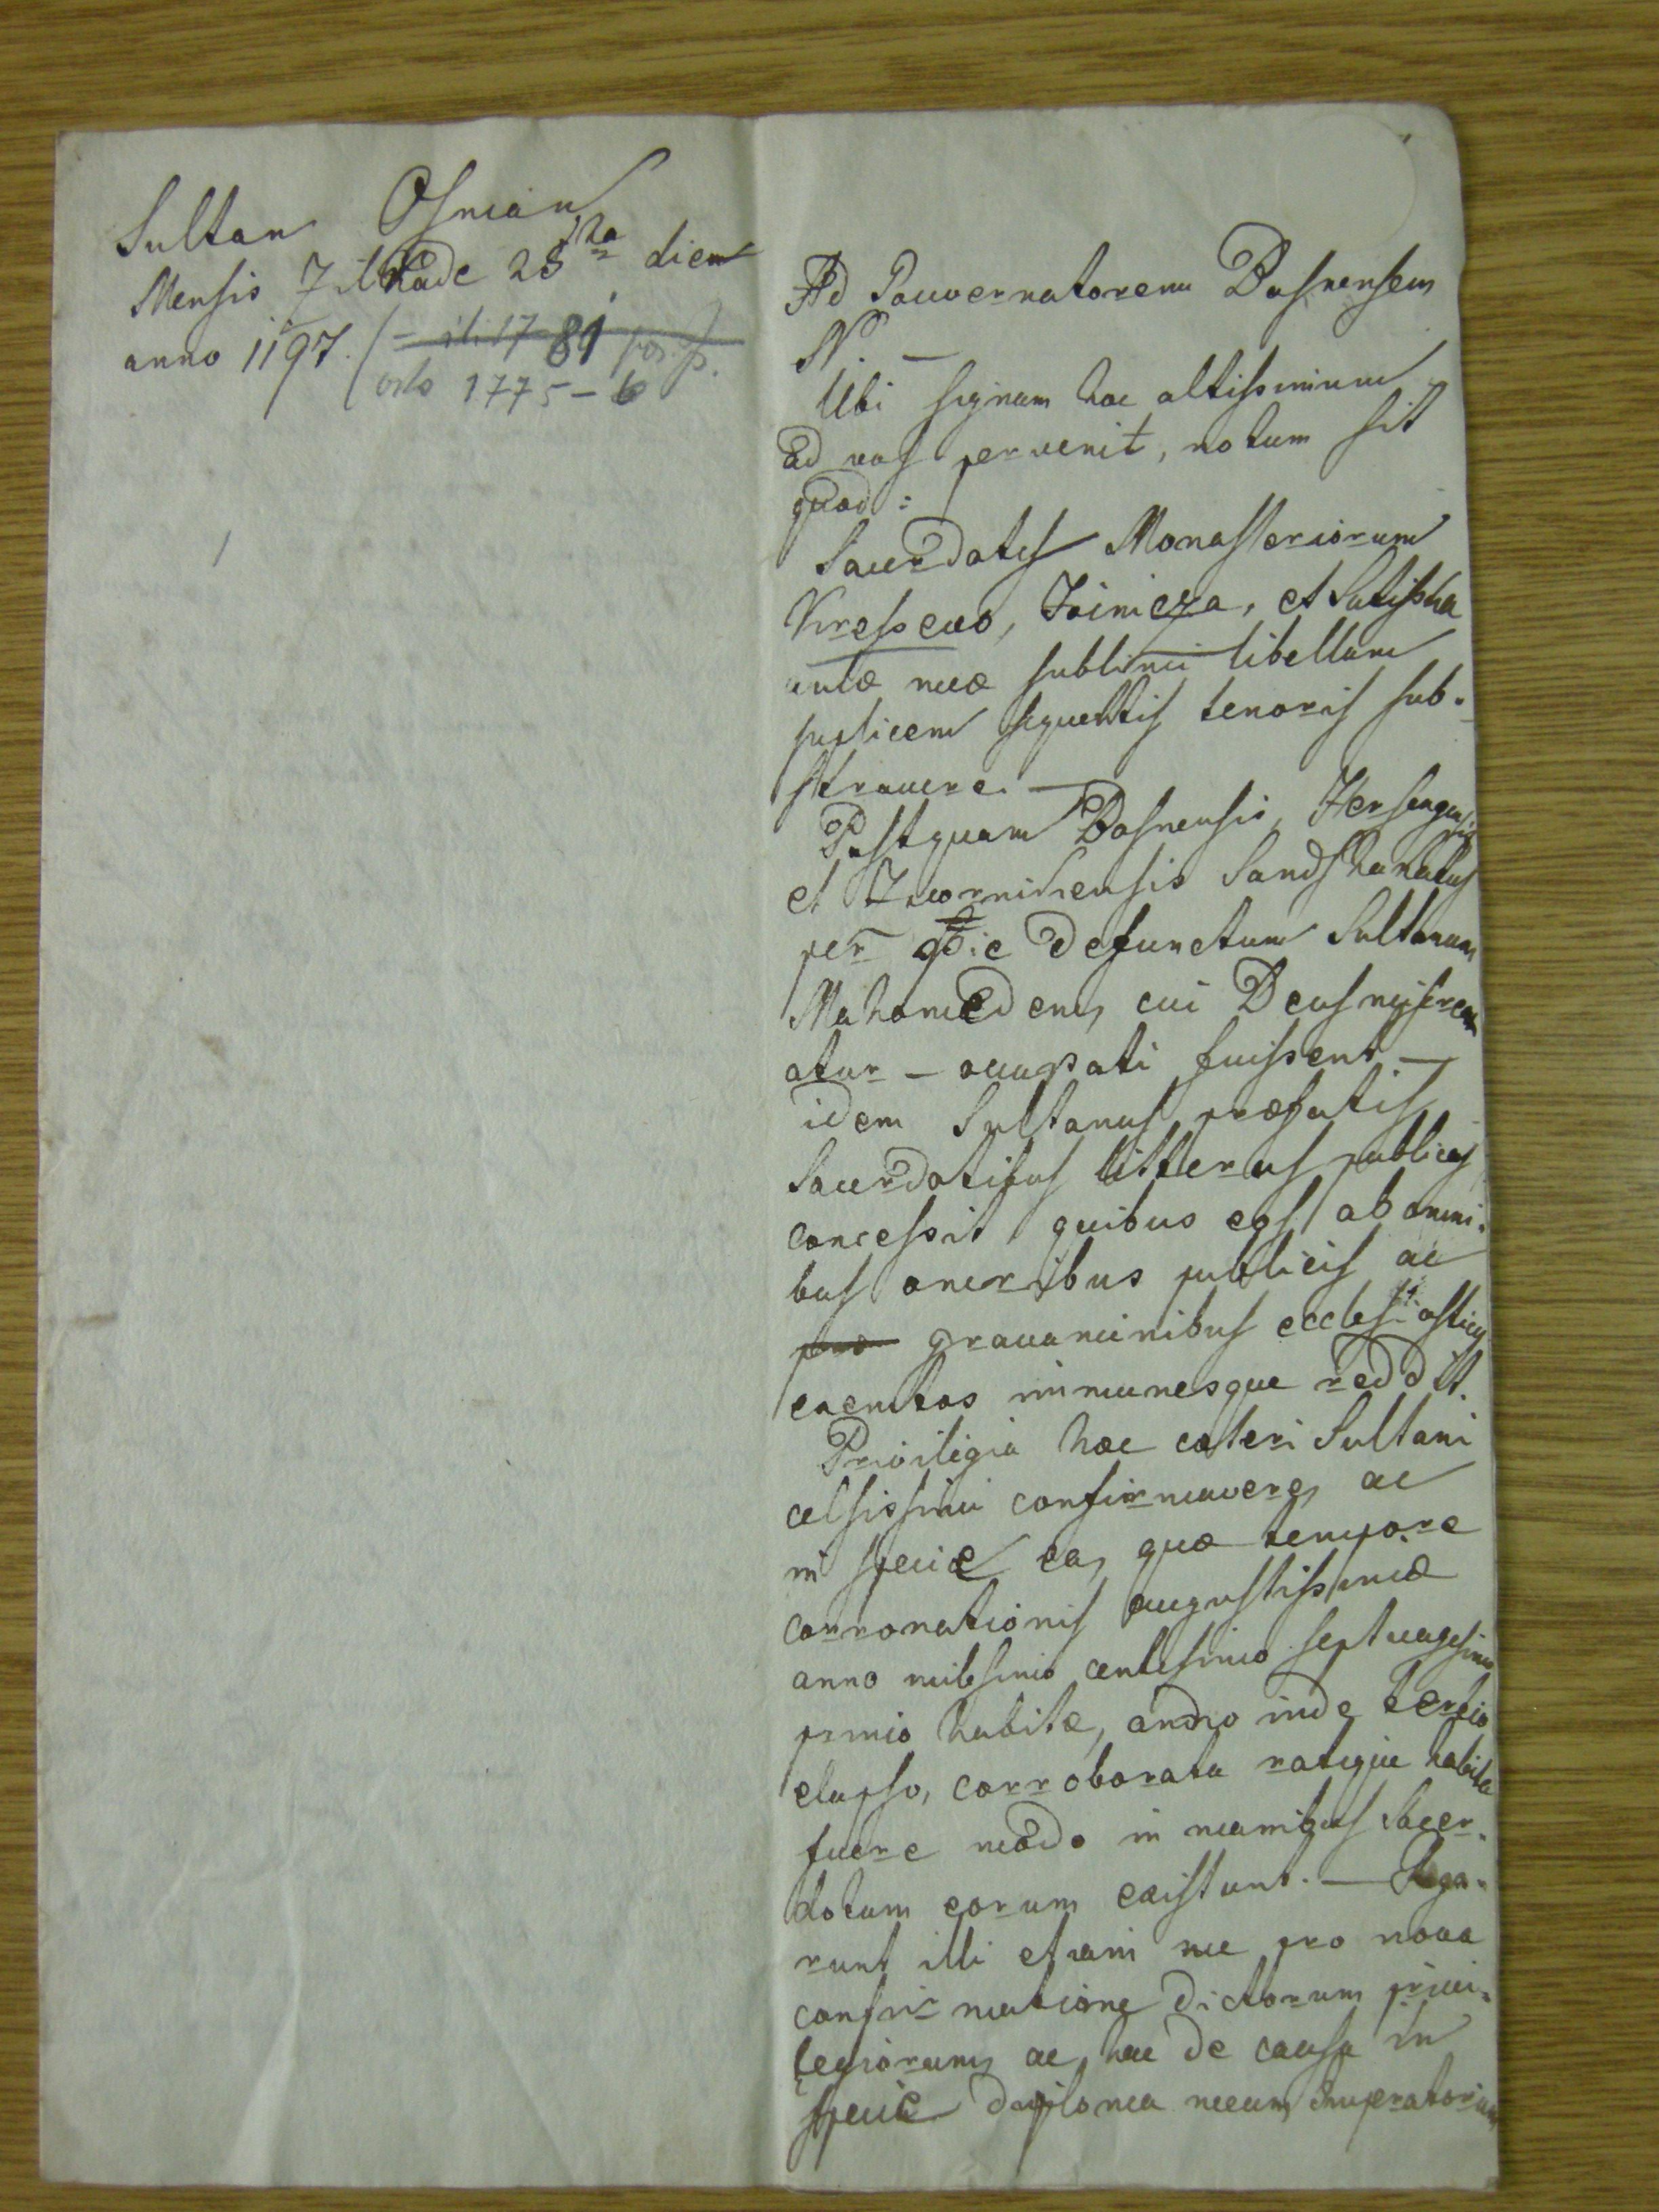 Sultan Osman
Mensis Zilkade 28 diem
anno 1197.
81
oslo 1775-6
Ad Gouvernatorem Bosnensem
N. —
Ubi signum hoc altissimum
ad vos pervenit, notum sit
quod:
Sacerdotes Monasteriorum
Kressevo, Foinicza, et Sutisska
aulæ meæ sublimi libellum
suplicem sequentis tenoris sub-
stravere. —
Postquam Bosnensis, Hersengensis
et Zwornikensis Sandshakatus
per pie defunctum Sultanum
Mahomedem, cui Deus misere
atur — occupati fuissent —
idem Sultanus præfatis
Sacerdotibus litteras publicas
concessit quibus eos ab omni-
bus oneribus publicis ac
gravaminibus ecclesiasticis
exemtos immunesque reddit.
Privilegia hæc cæteri Sultani
celsissimi confirmavere, ac
in specie ea, quæ tempore
corronationis augustissimæ
anno milesimo centesimo septuagesimo
primo habitæ, anno inde tertio
elapso, corroborata rataque habita
fuere modo in manibus Sacer-
dotum eorum existunt. — Roga-
runt illi etiam me pro nova
confirmatione dictorum privi-
legiorum, ac hac de causa in
specie diploma meum Imperatorium